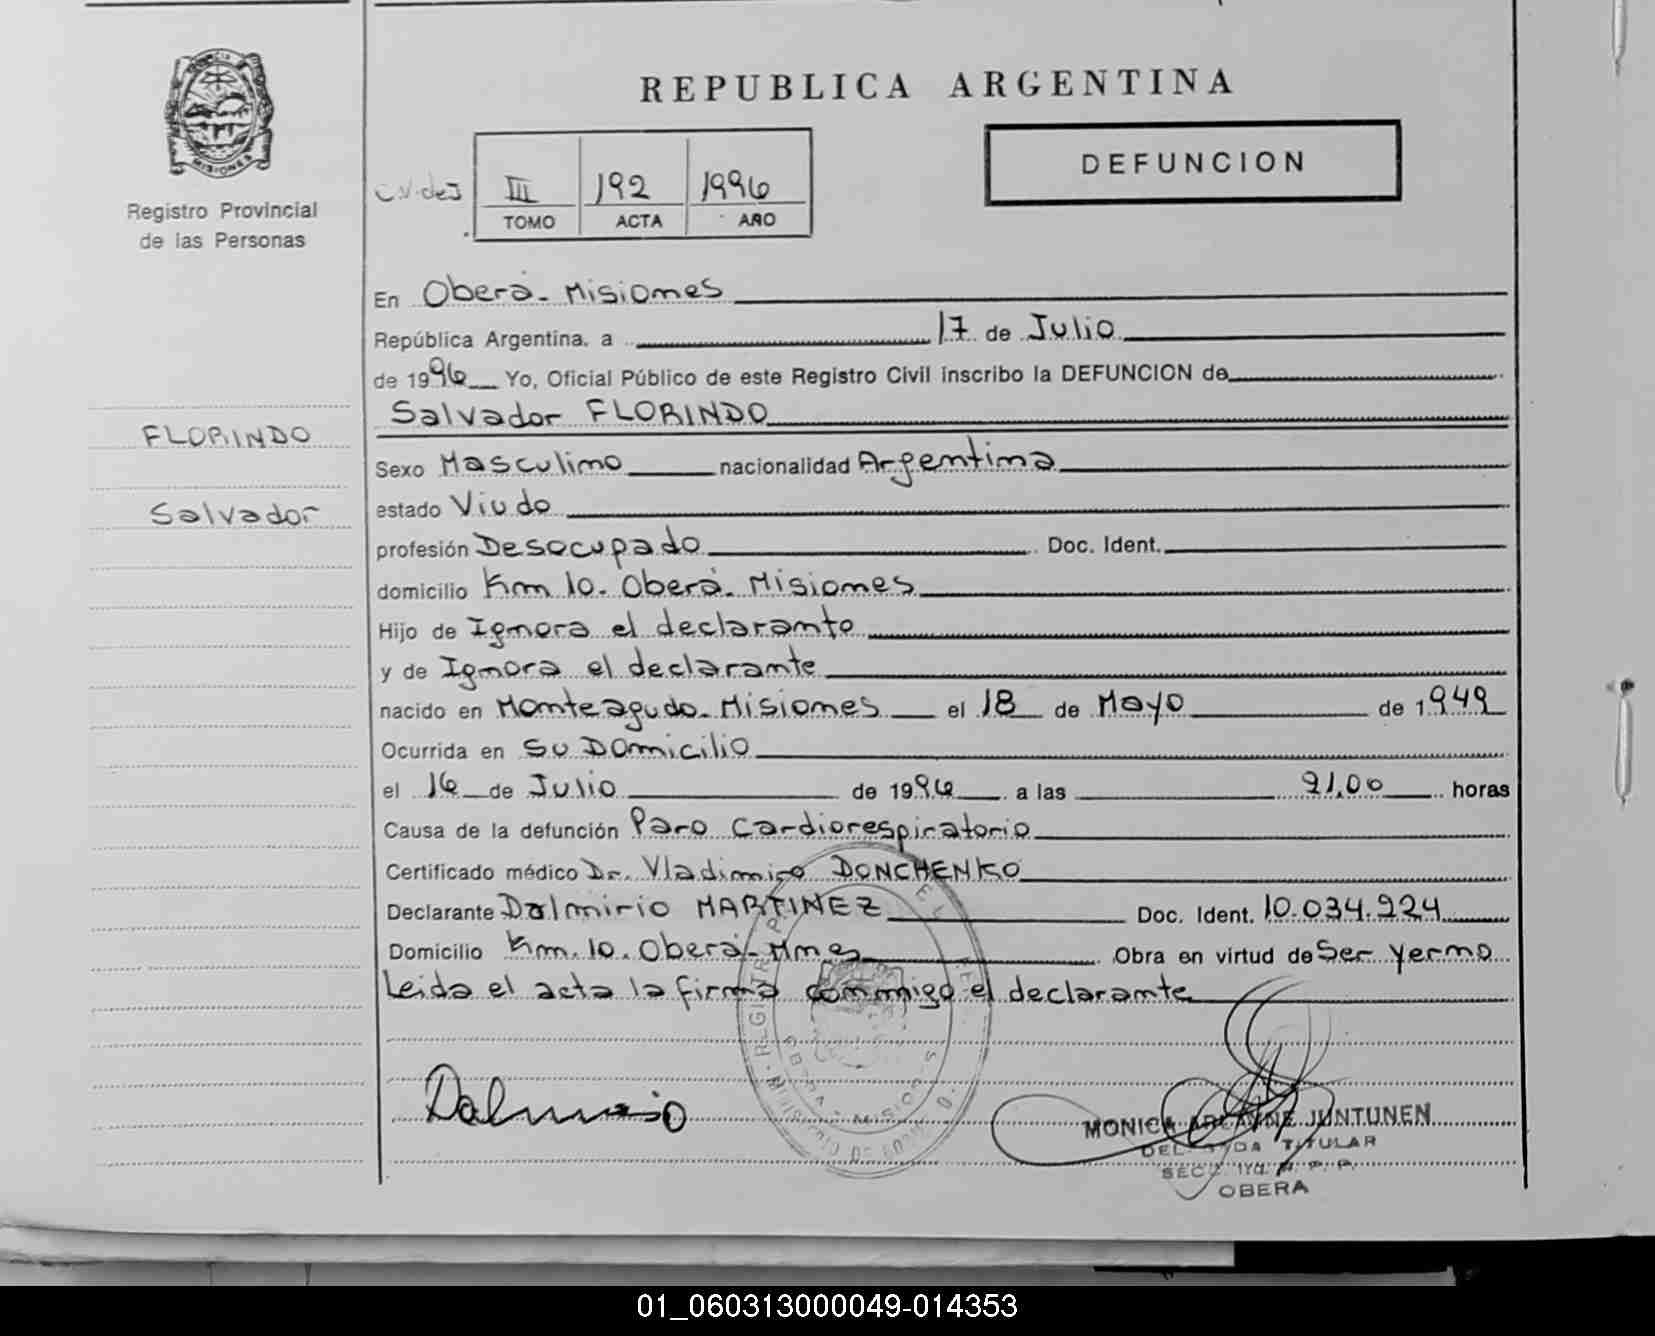 REPUBLICA ARGENTINA
MISIONES
Registro Provincial
de las Personas
III 192 1996
TOMO ACTA AÑO
DEFUNCION
En Oberá - Misiones
República Argentina, a 17 de Julio
de 1996 Yo, Oficial Público de este Registro Civil inscribo la DEFUNCION de
Salvador FLORINDO
FLORINDO
Salvador
Sexo Masculino nacionalidad Argentina
estado Viudo
profesión Desocupado Doc. Ident.
domicilio Km 10. Oberá. Misiones
Hijo de Ignora el declarante
y de Ignora el declarante
nacido en Monteagudo. Misiones el 18 de Mayo de 1949
Ocurrida en su Domicilio
el 16 de Julio de 1996 a las 21,00 horas
Causa de la defunción Paro Cardiorespiratorio
Certificado médico Dr. Vladimiro DONCHENKO
Declarante Dalmirio MARTINEZ Doc. Ident. 10.034.224
Domicilio Km. 10. Oberá - Mnes Obra en virtud de Ser yerno
Leida el acta la firma conmigo el declarante
MONICA JUNTUNEN
TITULAR
OBERA
01_060313000049-014353